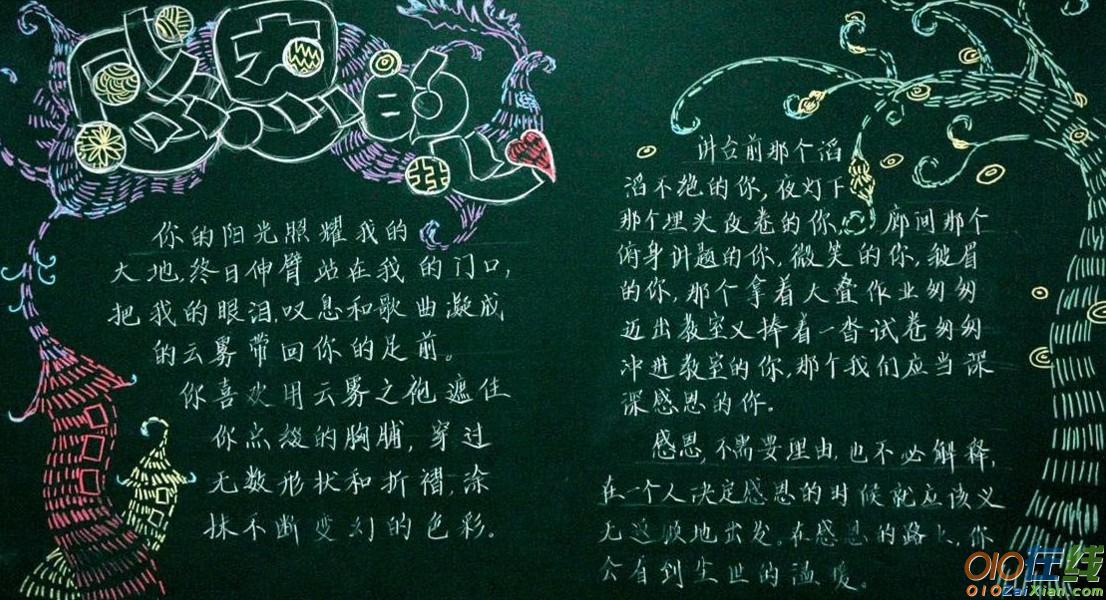 感恩的心
你的阳光照耀我的
大地,终日伸臂站在我的门口,
把我的眼泪,叹息和歌曲凝成
的云雾带回你的足前。
你喜欢用云雾之袍遮住
你点缀的胸脯,穿过
无数形状和折褶,涂
抹不断变幻的色彩。
讲台前那个滔
滔不绝的你,夜灯下
那个埋头改卷的你,廊间那个
俯身讲题的你,微笑的你,皱眉
的你,那个拿着大叠作业匆匆
迈出教室又捧着一沓试卷匆匆
冲进教室的你,那个我们应当深
深感恩的你。
感恩,不需要理由,也不必解释,
在一个人决定感恩的时候就应该义
无返顾地出发。在感恩的路上,你
会看到尘世的温暖。
010在线
010ZaiXian.com